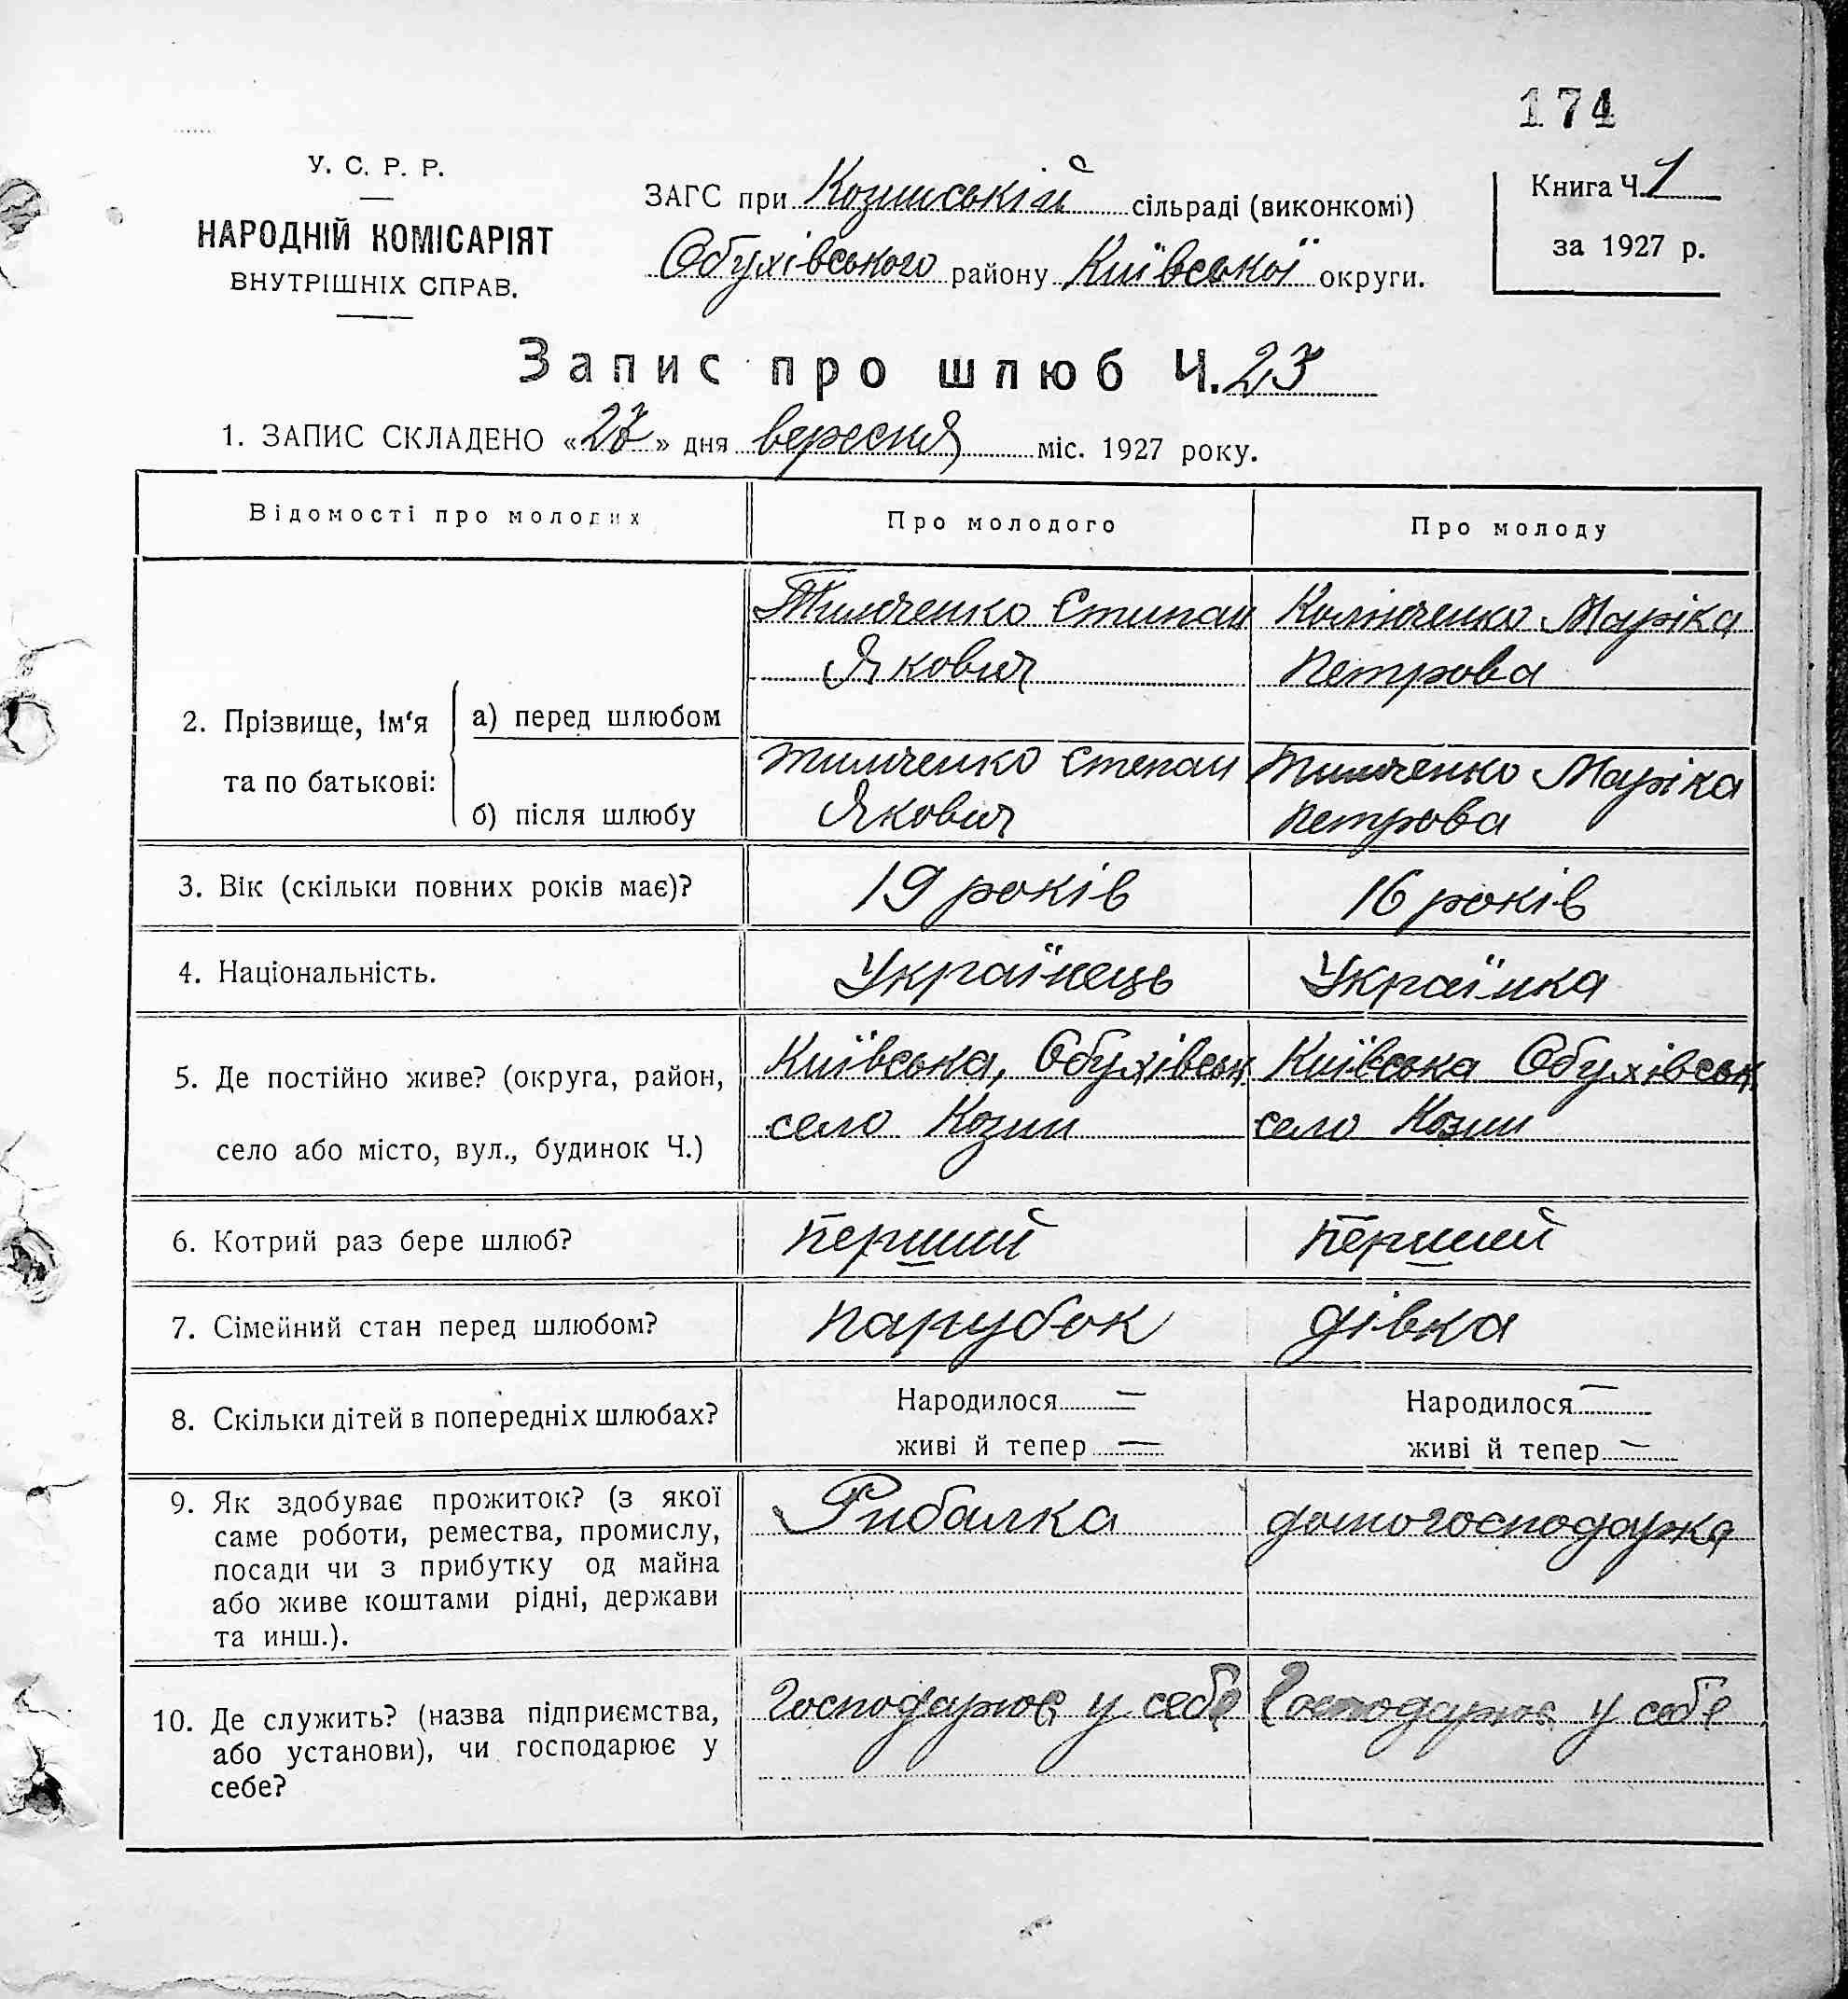 174
У. С. Р. Р.
НАРОДНІЙ КОМІСАРІЯТ
ВНУТРІШНІХ СПРАВ.
ЗАГС при Козинській сільраді (виконкомі)
Обухівського району Київської округи.
Книга Ч. 1
за 1927 р.
Запис про шлюб Ч. 23
1. ЗАПИС СКЛАДЕНО «27» дня вересня міс. 1927 року.
Відомості про молодих
Про молодого
Про молоду
2. Прізвище, Ім'я та по батькові:
а) перед шлюбом
Тимченко Стипан
Якович
Маріка
Петрова
б) після шлюбу
Тимченко Степан
Якович
Тимченко Маріка
Петрова
3. Вік (скільки повних років має)?
19 років
16 років
4. Національність.
Українець
Українка
5. Де постійно живе? (округа, район,
село або місто, вул., будинок Ч.)
Київська, Обухівськ
село Козин
Київська Обухівськ
село Козин
6. Котрий раз бере шлюб?
Перший
Перший
7. Сімейний стан перед шлюбом?
парубок
дівка
8. Скільки дітей в попередніх шлюбах?
Народилося —
живі й тепер —
Народилося —
живі й тепер —
9. Як здобуває прожиток? (з якої
саме роботи, ремества, промислу,
посади чи з прибутку од майна
або живе коштами рідні, держави
та инш.).
Рибалка
домогосподарка
10. Де служить? (назва підприємства,
або установи), чи господарює у
себе?
Господарює у себе
Господарює у себе